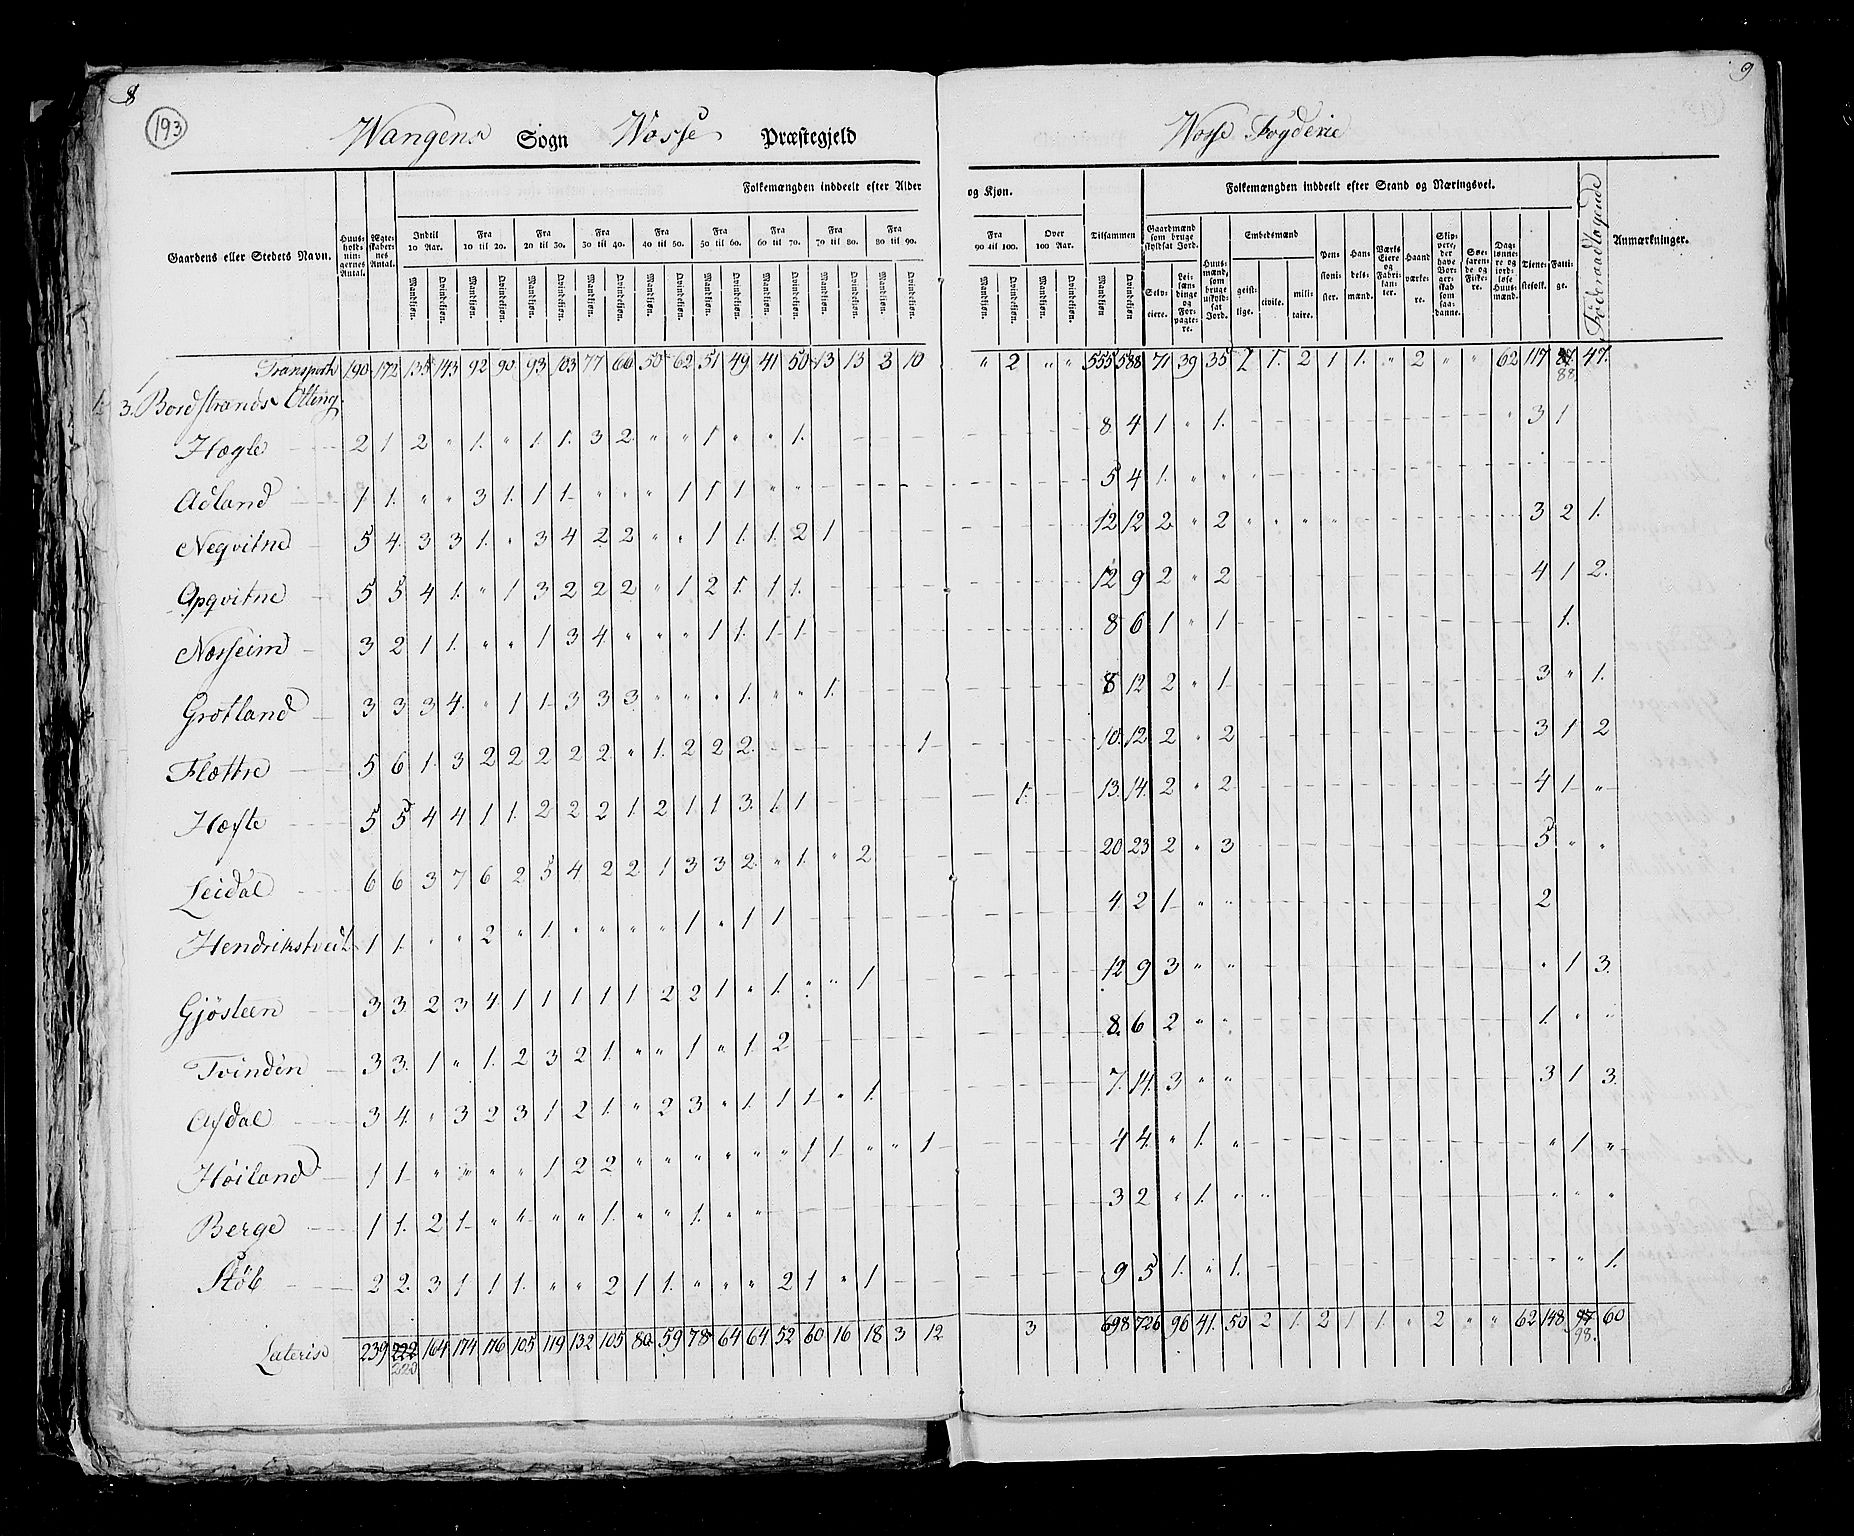 8
9
193
Wangens Sogn Wosse Præstegjeld
Wosse Fogderie
Gaardens eller Stedets Navn.
Huus-holdnin-gernes Antal.
Ægteskabernes Antal.
Folkemængden inddeelt efter Alder og Kjøn.
Indtil 10 Aar. Fra 10 til 20. Fra 20 til 30. Fra 30 til 40. Fra 40 til 50. Fra 50 til 60. Fra 60 til 70. Fra 70 til 80. Fra 80 til 90. Fra 90 til 100. Over 100 Aar.
Mandkjøn. Qvindekjøn.
Tilsammen
Folkemængden inddeelt efter Stand og Næringsvei.
Gaardmænd som bruge skyldsat Jord.
Selveiere. Leilændinge og Forpagtere.
Huusmænd, som bruge uskyldsat Jord.
Embedsmænd
geistlige. civile. militaire.
Pensionister. Handelsmænd. Værks Eiere og Fabrikanter. Haandværkere.
Skippere, der have Borgerskab som saadanne.
Søefarende og Fiskere.
Daglønnere og jordløse Huusmænd.
Tienestefolk. Fattige.
Föderaadtagende
Anmærkninger.
Transport 190 172 135 143 92 90 93 103 77 66 50 62 51 49 41 50 13 13 3 10 " 2 " " 555 588 71 39 35 2 1. 2 1 1. " 2 " " 62 117 88. 47.
3. Bordstrands Otting
Hægle 2 1 2 " 1. " 1. 1. 3 2. " " 1 " " 1. 8 4 1 " 1. " 3 1
Adland 1. 1. " " 3 1. 1 1. " " " 1 1 1 " " 5 4 1. " "
Neqvitne 5 4. 3 3 1. " 3 4 2 2 " " 1 1. 1. 2 1 12 12 2 " 2 3 2 1.
Opqvitne 5 5 4 1. " 1 3 2 2 2 " 1 2 1. 1 1. 12 9 2 " 2 4 1 2.
Næsheim 3 2 1 1. " " 1 3 4. " " " 1 1. 1 1. 8 6 1 " 1 1.
Grotland 3 3 3 4. " 1 1 3 3 3 " " " 1. " " 1. 8 12 2 " 1 3 " 1.
Flættre 5 6 1. 3 2 2 2 2 2 " 1. 2 2 2 1 10. 12 2 " 2 3 1 2
Hæfte 5 5 4 4 1 1. 2 2 2 1. 2 1 1 3. 1. 1 1. 13. 14. 2 " 2 4 1 "
Leidal 6 6 3 7 6 2 5 4. 2 2 1 3 3 2. " 1. " 2 20 23 2 " 3 5 " "
Hendrikstveit 1 1. " " 2 " 1. " " " " 1 " 1 1 4. 2 1 " " 2
Gjösteen 3 3. 2 3 4 1 1 1 1 1 2 2 1 " 1. " " 1 12 9 3 " " " 1 3.
Tvinden 3 3. 1 " 1. 2 3 2 1. " " 1 " 1. 2 8. 6 2 " " 1. " "
Asdal 3 4. " 3 2 3 1 2 1. " 2 3 " 1. 1 1 " 1. 7. 14. 3 " " 3 1 3.
Höiland 1 1. " " " " 1 2 2 " " " " " " 1 1. " " 1 4 4. " 1. " " 1 "
Berge 1 1. 2 1. " " " " 1. " " 1. " " 3 2 " 1. " " " " "
Stöb 2 2. 3 1 1 1. " " 2 1 1. " " " 2 1 " 1 9 5 1. " 1. " " 1.
Lateris 239 222 220 164 174 116 105 119 132 105 80 59 78 64 64 52 60 16 18 3 12 3 698 726 96 41. 50 2 1. 2 1 1. " 2 " " 62 148 97 98. 60